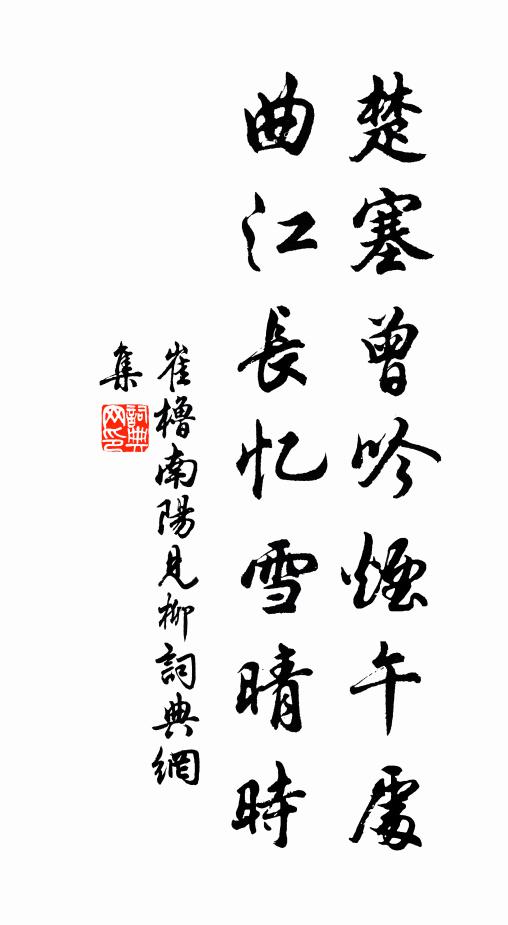 楚塞曾吟煙午處
曲江長忆雪晴時
崔櫓南陽見柳詞典網
集
詞典
网印